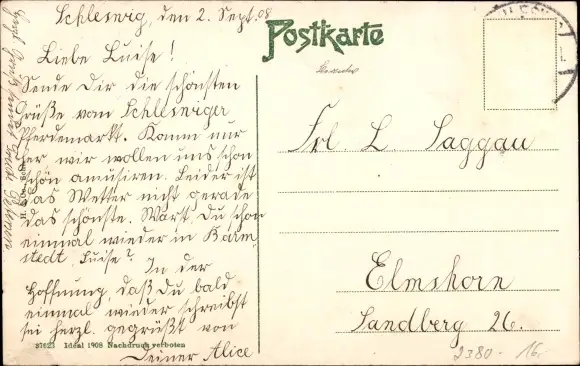 Schleswig, den 2. Sept. 08
Liebe Luise!
Sende Dir die schönsten
Grüße vom Schleswiger
Pferdemarkt. Komm nur
her wir wollen uns schon
schön amüsiren. Leider ist
das Wetter nicht gerade
das schönste. Warst Du schon
einmal wieder in Barm-
stedt, Luise? In der
Hoffnung, daß Du bald
einmal wieder schreibst
sei herzl. gegrüßt von
Deiner Alice
37623 Ideal 1908 Nachdruck verboten
Postkarte
Frl. L. Saggau
Elmshorn
Sandberg 26.
2380.- 16.-